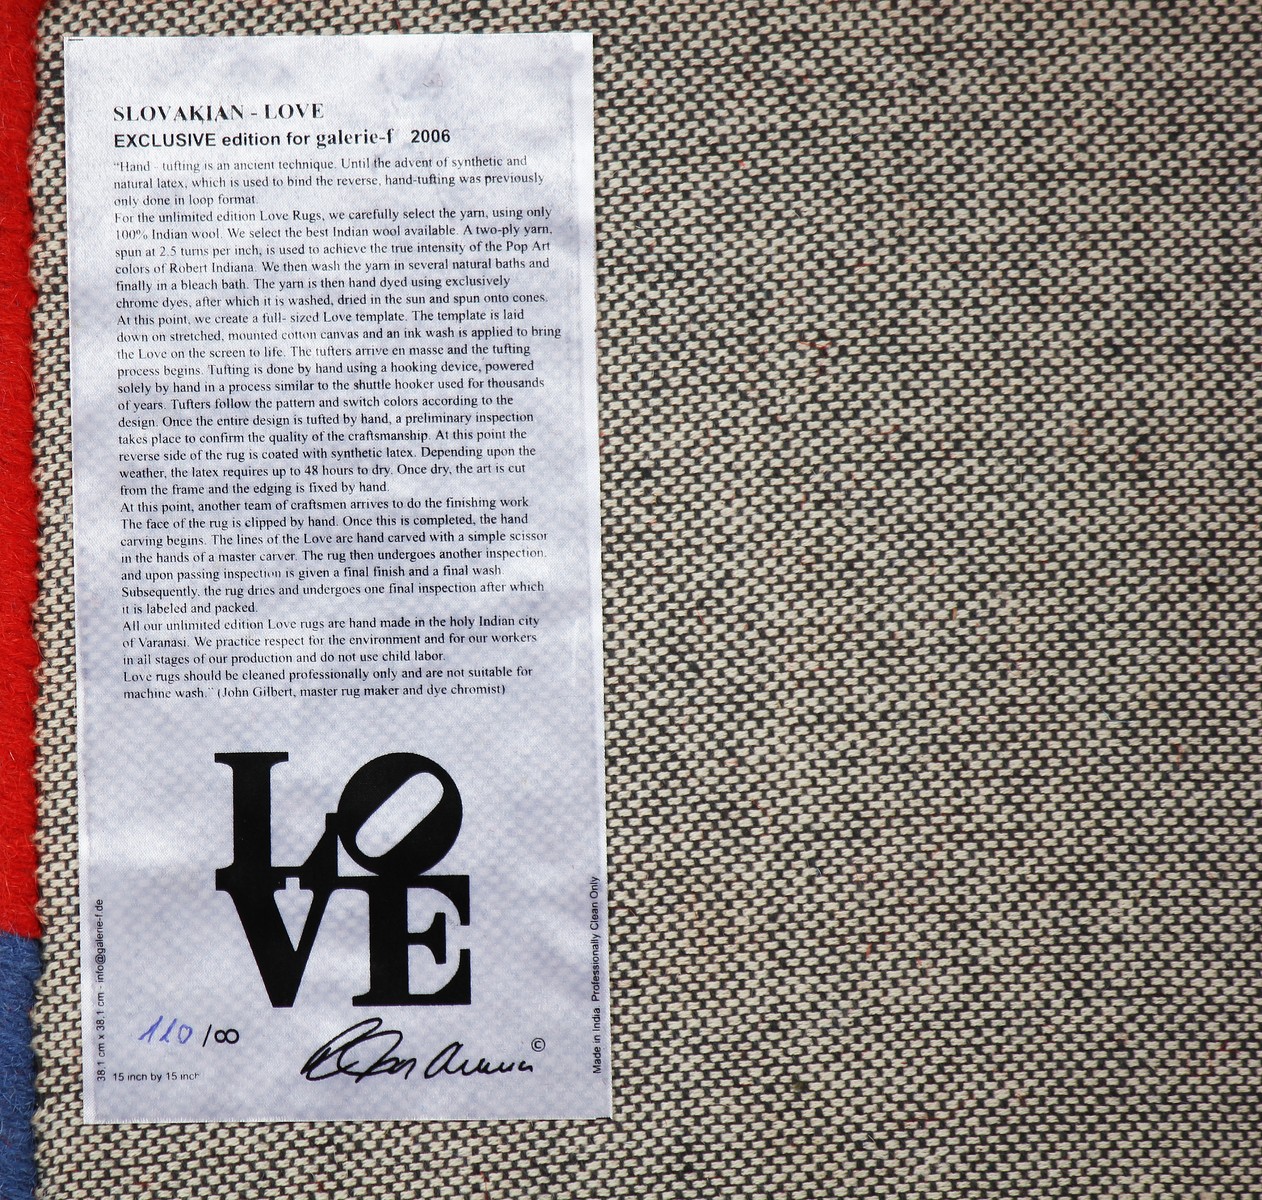 SLOVAKIAN - LOVE
EXCLUSIVE edition for galerie-f 2006
"Hand - tufting is an ancient technique. Until the advent of synthetic and
natural latex, which is used to bind the reverse, hand-tufting was previously
only done in loop format.
For the unlimited edition Love Rugs, we carefully select the yarn, using only
100% Indian wool. We select the best Indian wool available. A two-ply yarn,
spun at 2.5 turns per inch, is used to achieve the true intensity of the Pop Art
colors of Robert Indiana. We then wash the yarn in several natural baths and
finally in a bleach bath. The yarn is then hand dyed using exclusively
chrome dyes, after which it is washed, dried in the sun and spun onto cones.
At this point, we create a full- sized Love template. The template is laid
down on stretched, mounted cotton canvas and an ink wash is applied to bring
the Love on the screen to life. The tufters arrive en masse and the tufting
process begins. Tufting is done by hand using a hooking device, powered
solely by hand in a process similar to the shuttle hooker used for thousands
of years. Tufters follow the pattern and switch colors according to the
design. Once the entire design is tufted by hand, a preliminary inspection
takes place to confirm the quality of the craftsmanship. At this point the
reverse side of the rug is coated with synthetic latex. Depending upon the
weather, the latex requires up to 48 hours to dry. Once dry, the art is cut
from the frame and the edging is fixed by hand.
At this point, another team of craftsmen arrives to do the finishing work
The face of the rug is clipped by hand. Once this is completed, the hand
carving begins. The lines of the Love are hand carved with a simple scissor
in the hands of a master carver. The rug then undergoes another inspection,
and upon passing inspection is given a final finish and a final wash.
Subsequently, the rug dries and undergoes one final inspection after which
it is labeled and packed.
All our unlimited edition Love rugs are hand made in the holy Indian city
of Varanasi. We practice respect for the environment and for our workers
in all stages of our production and do not use child labor.
Love rugs should be cleaned professionally only and are not suitable for
machine wash." (John Gilbert, master rug maker and dye chromist)
LO
VE
110 /∞
©
15 inch by 15 inch
38.1 cm x 38.1 cm - info@galerie-f.de
Made in India. Professionally Clean Only